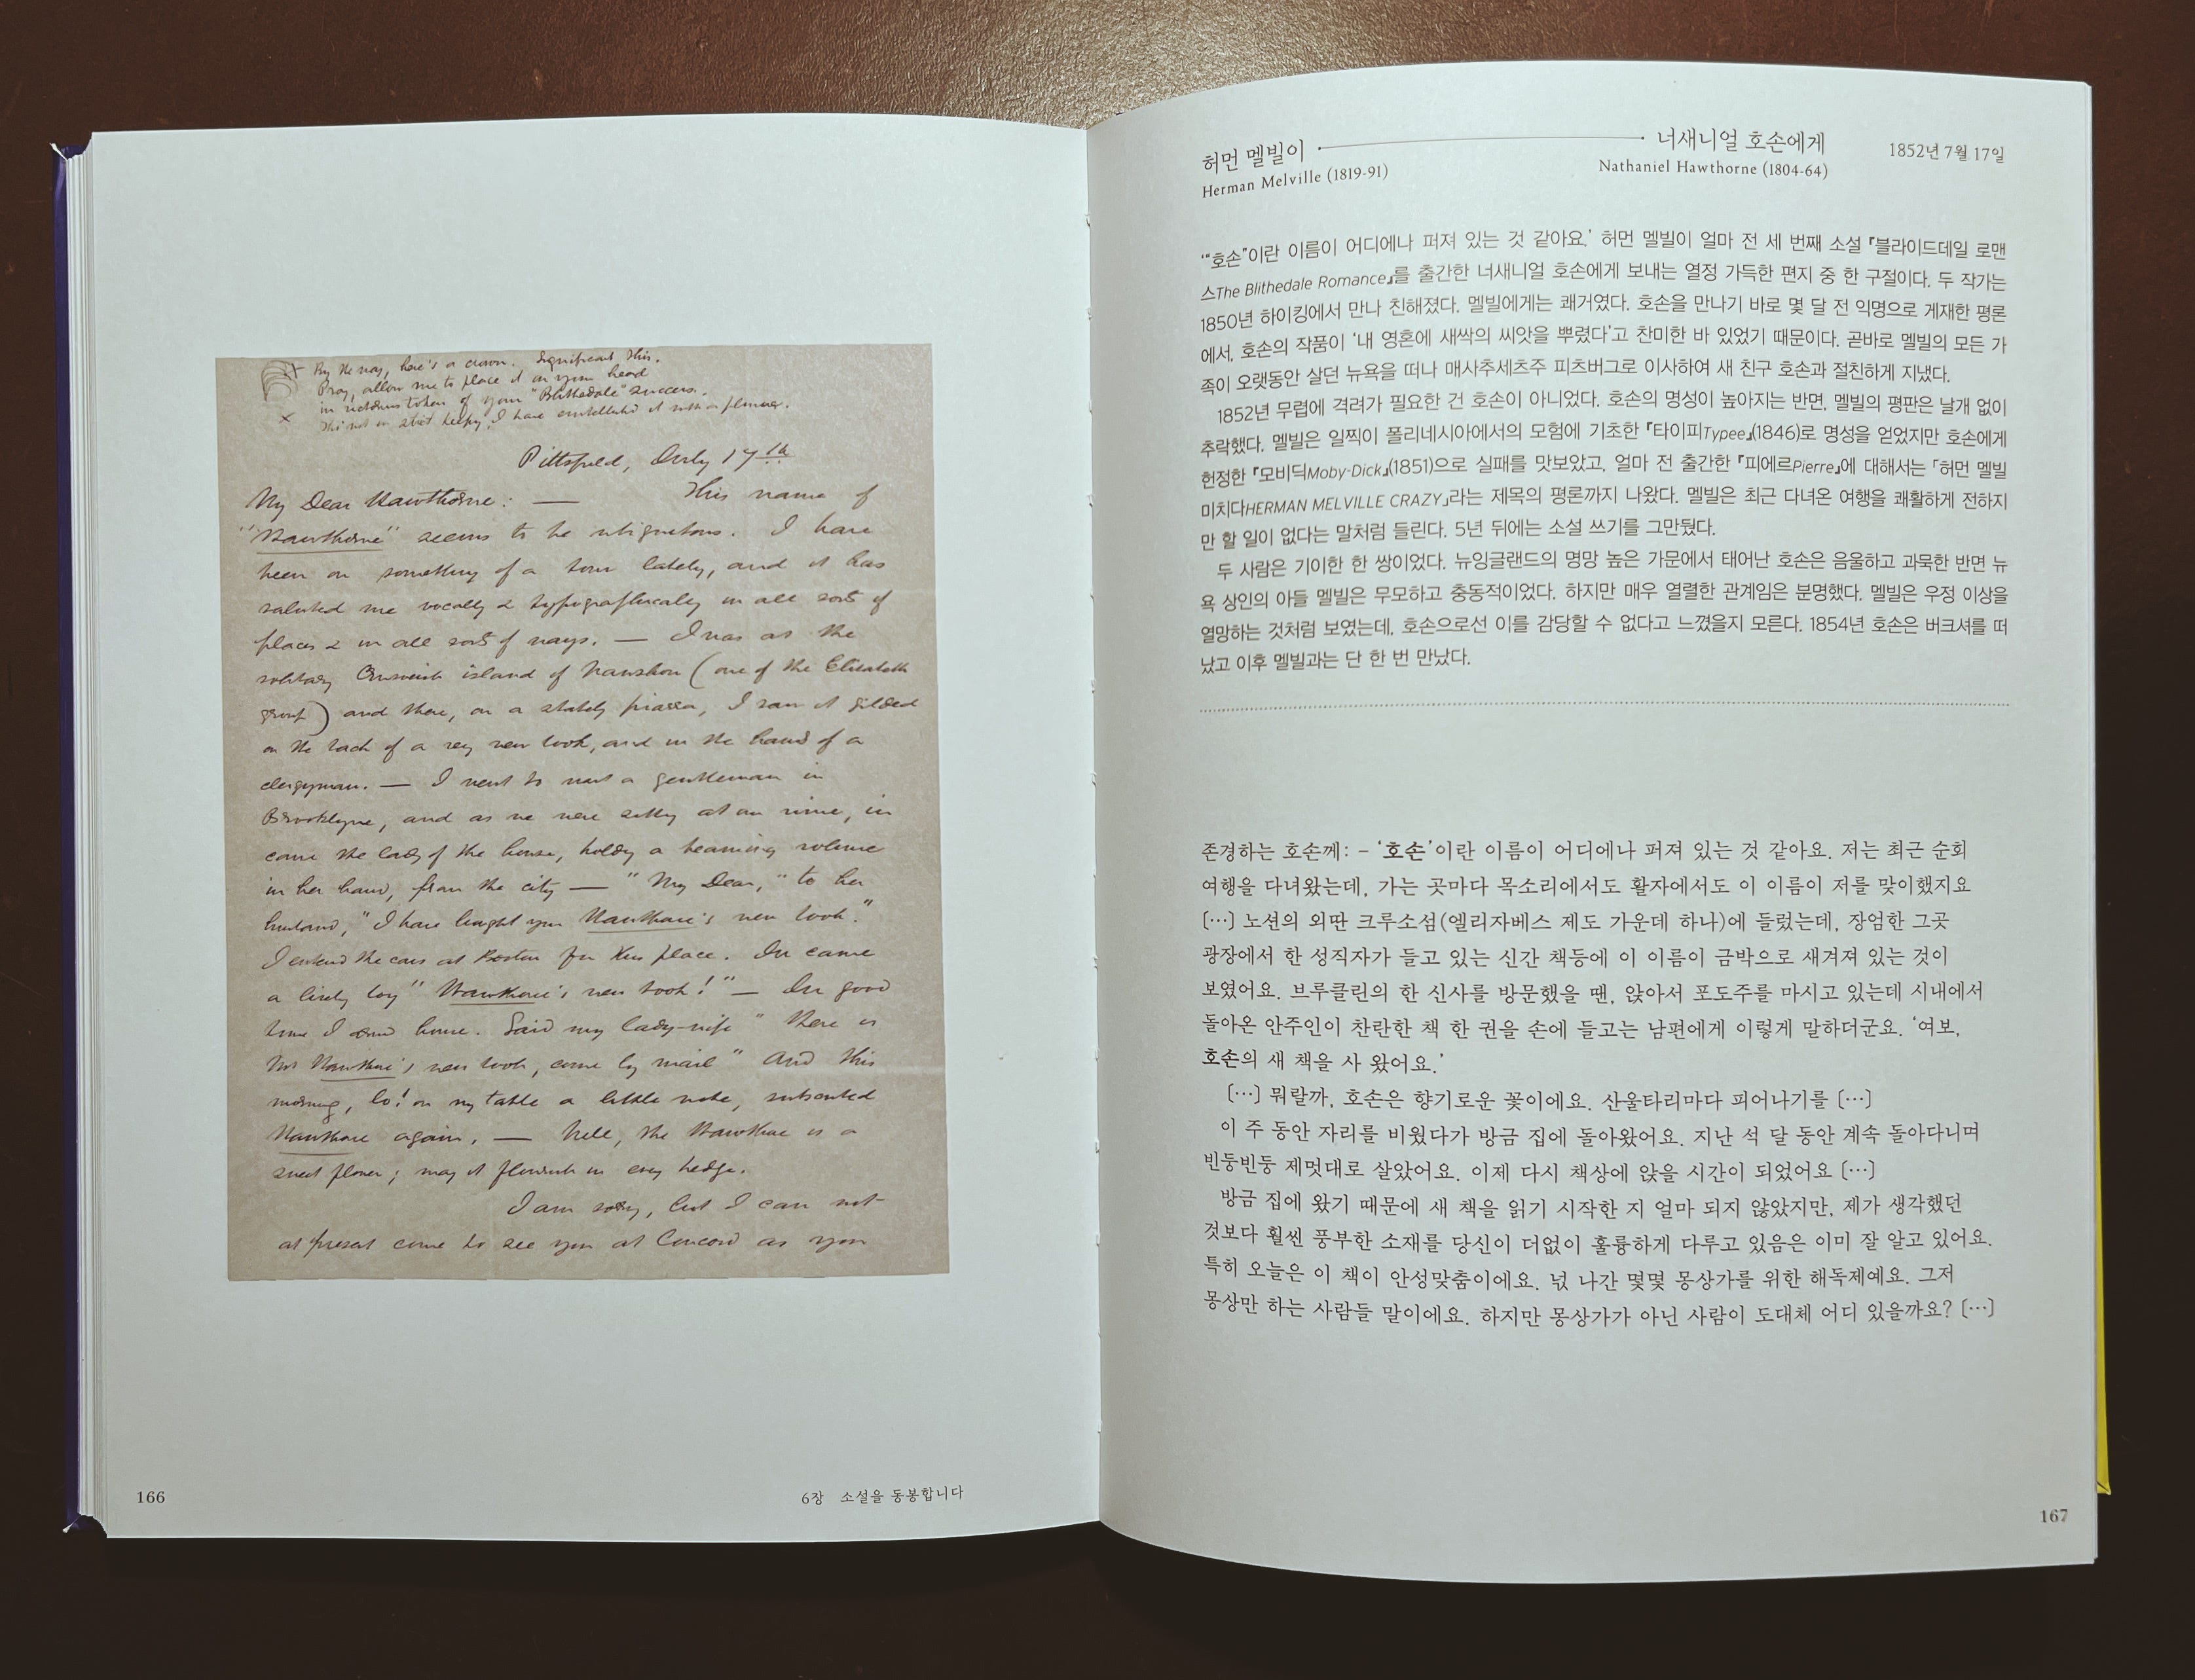 By the way, here's a crown. Significant this.
Pray, allow me to place it on your head
in victorious token of your "Blithedale" success.
Tho' not in strict keeping, I have embellished it with a plume.
Pittsfield, July 17th
My Dear Hawthorne: — This name of
"Hawthorne" seems to be ubiquitous. I have
been on something of a tour lately, and it has
saluted me vocally & typographically in all sorts of
places & in all sorts of ways. — I was at the
solitary Crusoeish island of Naushon (one of the Elisabeth
group) and there, on a stately piazza, I saw it gilded
on the back of a very new book, and in the hands of a
clergyman. — I went to visit a gentleman in
Brooklyne, and as we were sitting at our wine, in
came the lady of the house, holding a beaming volume
in her hand, from the city — "My Dear," to her
husband, "I have brought you Hawthorne's new book."
I entered the cars at Boston for this place. In came
a lively boy "Hawthorne's new book!" — In good
time I arrived home. Said my lady-wife "there is
Mr Hawthorne's new book, come by mail" And this
morning, lo! on my table a little note, subscribed
Hawthorne again. — Well, the Hawthorne is a
sweet flower; may it flourish in every hedge.
I am sorry, but I can not
at present come to see you at Concord as you
166
6장 소설을 동봉합니다
허먼 멜빌이 너새니얼 호손에게 1852년 7월 17일
Herman Melville (1819-91) Nathaniel Hawthorne (1804-64)
‘“호손”이란 이름이 어디에나 퍼져 있는 것 같아요.’ 허먼 멜빌이 얼마 전 세 번째 소설 『블라이드데일 로맨
스The Blithedale Romance』를 출간한 너새니얼 호손에게 보내는 열정 가득한 편지 중 한 구절이다. 두 작가는
1850년 하이킹에서 만나 친해졌다. 멜빌에게는 쾌거였다. 호손을 만나기 바로 몇 달 전 익명으로 게재한 평론
에서, 호손의 작품이 ‘내 영혼에 새싹의 씨앗을 뿌렸다’고 찬미한 바 있었기 때문이다. 곧바로 멜빌의 모든 가
족이 오랫동안 살던 뉴욕을 떠나 매사추세츠주 피츠버그로 이사하여 새 친구 호손과 절친하게 지냈다.
1852년 무렵에 격려가 필요한 건 호손이 아니었다. 호손의 명성이 높아지는 반면, 멜빌의 평판은 날개 없이
추락했다. 멜빌은 일찍이 폴리네시아에서의 모험에 기초한 『타이피Typee』(1846)로 명성을 얻었지만 호손에게
헌정한 『모비딕Moby-Dick』(1851)으로 실패를 맛보았고, 얼마 전 출간한 『피에르Pierre』에 대해서는 「허먼 멜빌
미치다HERMAN MELVILLE CRAZY」라는 제목의 평론까지 나왔다. 멜빌은 최근 다녀온 여행을 쾌활하게 전하지
만 할 일이 없다는 말처럼 들린다. 5년 뒤에는 소설 쓰기를 그만뒀다.
두 사람은 기이한 한 쌍이었다. 뉴잉글랜드의 명망 높은 가문에서 태어난 호손은 음울하고 과묵한 반면 뉴
욕 상인의 아들 멜빌은 무모하고 충동적이었다. 하지만 매우 열렬한 관계임은 분명했다. 멜빌은 우정 이상을
열망하는 것처럼 보였는데, 호손으로선 이를 감당할 수 없다고 느꼈을지 모른다. 1854년 호손은 버크셔를 떠
났고 이후 멜빌과는 단 한 번 만났다.
존경하는 호손께: – ‘호손’이란 이름이 어디에나 퍼져 있는 것 같아요. 저는 최근 순회
여행을 다녀왔는데, 가는 곳마다 목소리에서도 활자에서도 이 이름이 저를 맞이했지요
[…] 노션의 외딴 크루소섬(엘리자베스 제도 가운데 하나)에 들렀는데, 장엄한 그곳
광장에서 한 성직자가 들고 있는 신간 책등에 이 이름이 금박으로 새겨져 있는 것이
보였어요. 브루클린의 한 신사를 방문했을 땐, 앉아서 포도주를 마시고 있는데 시내에서
돌아온 안주인이 찬란한 책 한 권을 손에 들고는 남편에게 이렇게 말하더군요. ‘여보,
호손의 새 책을 사 왔어요.’
[…] 뭐랄까, 호손은 향기로운 꽃이에요. 산울타리마다 피어나기를 […]
이 주 동안 자리를 비웠다가 방금 집에 돌아왔어요. 지난 석 달 동안 계속 돌아다니며
빈둥빈둥 제멋대로 살았어요. 이제 다시 책상에 앉을 시간이 되었어요 […]
방금 집에 왔기 때문에 새 책을 읽기 시작한 지 얼마 되지 않았지만, 제가 생각했던
것보다 훨씬 풍부한 소재를 당신이 더없이 훌륭하게 다루고 있음은 이미 잘 알고 있어요.
특히 오늘은 이 책이 안성맞춤이에요. 넋 나간 몇몇 몽상가를 위한 해독제예요. 그저
몽상만 하는 사람들 말이에요. 하지만 몽상가가 아닌 사람이 도대체 어디 있을까요? […]
167